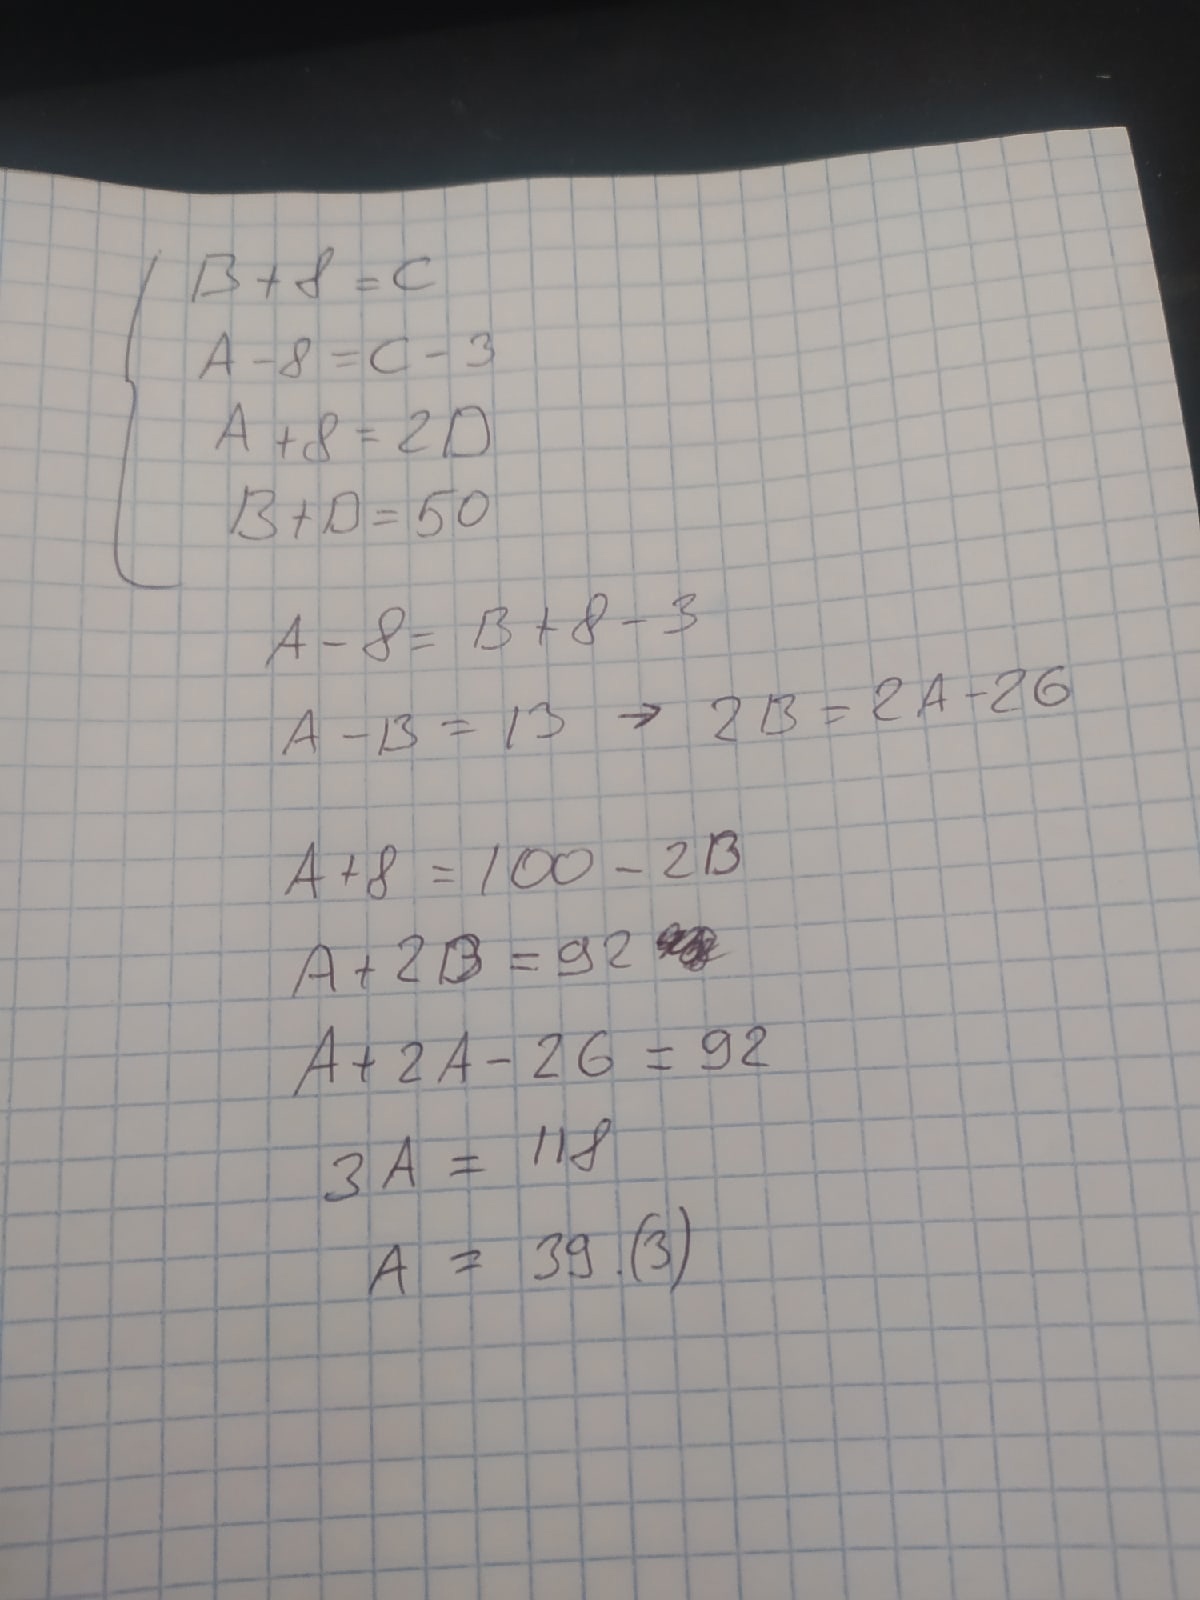 B+8=C
A-8=C-3
A+8=2D
B+D=50
A-8=B+8-3
A-B=13 → 2B=2A-26
A+8=100-2B
A+2B=92
A+2A-26=92
3A=118
A=39.(3)